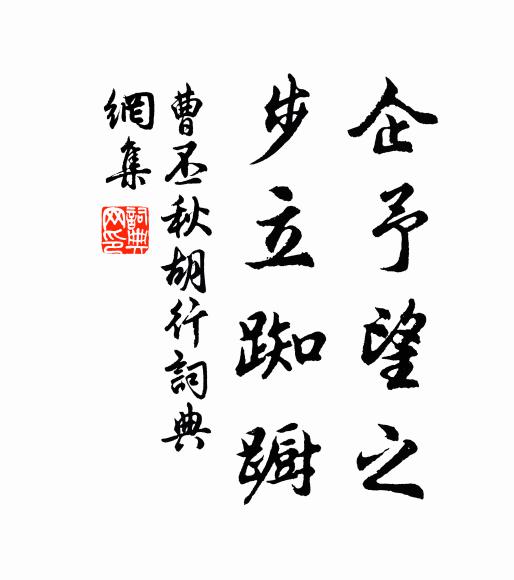 企予望之
步立踟蹰
曹丕秋胡行詞典
網集
詞典
网印